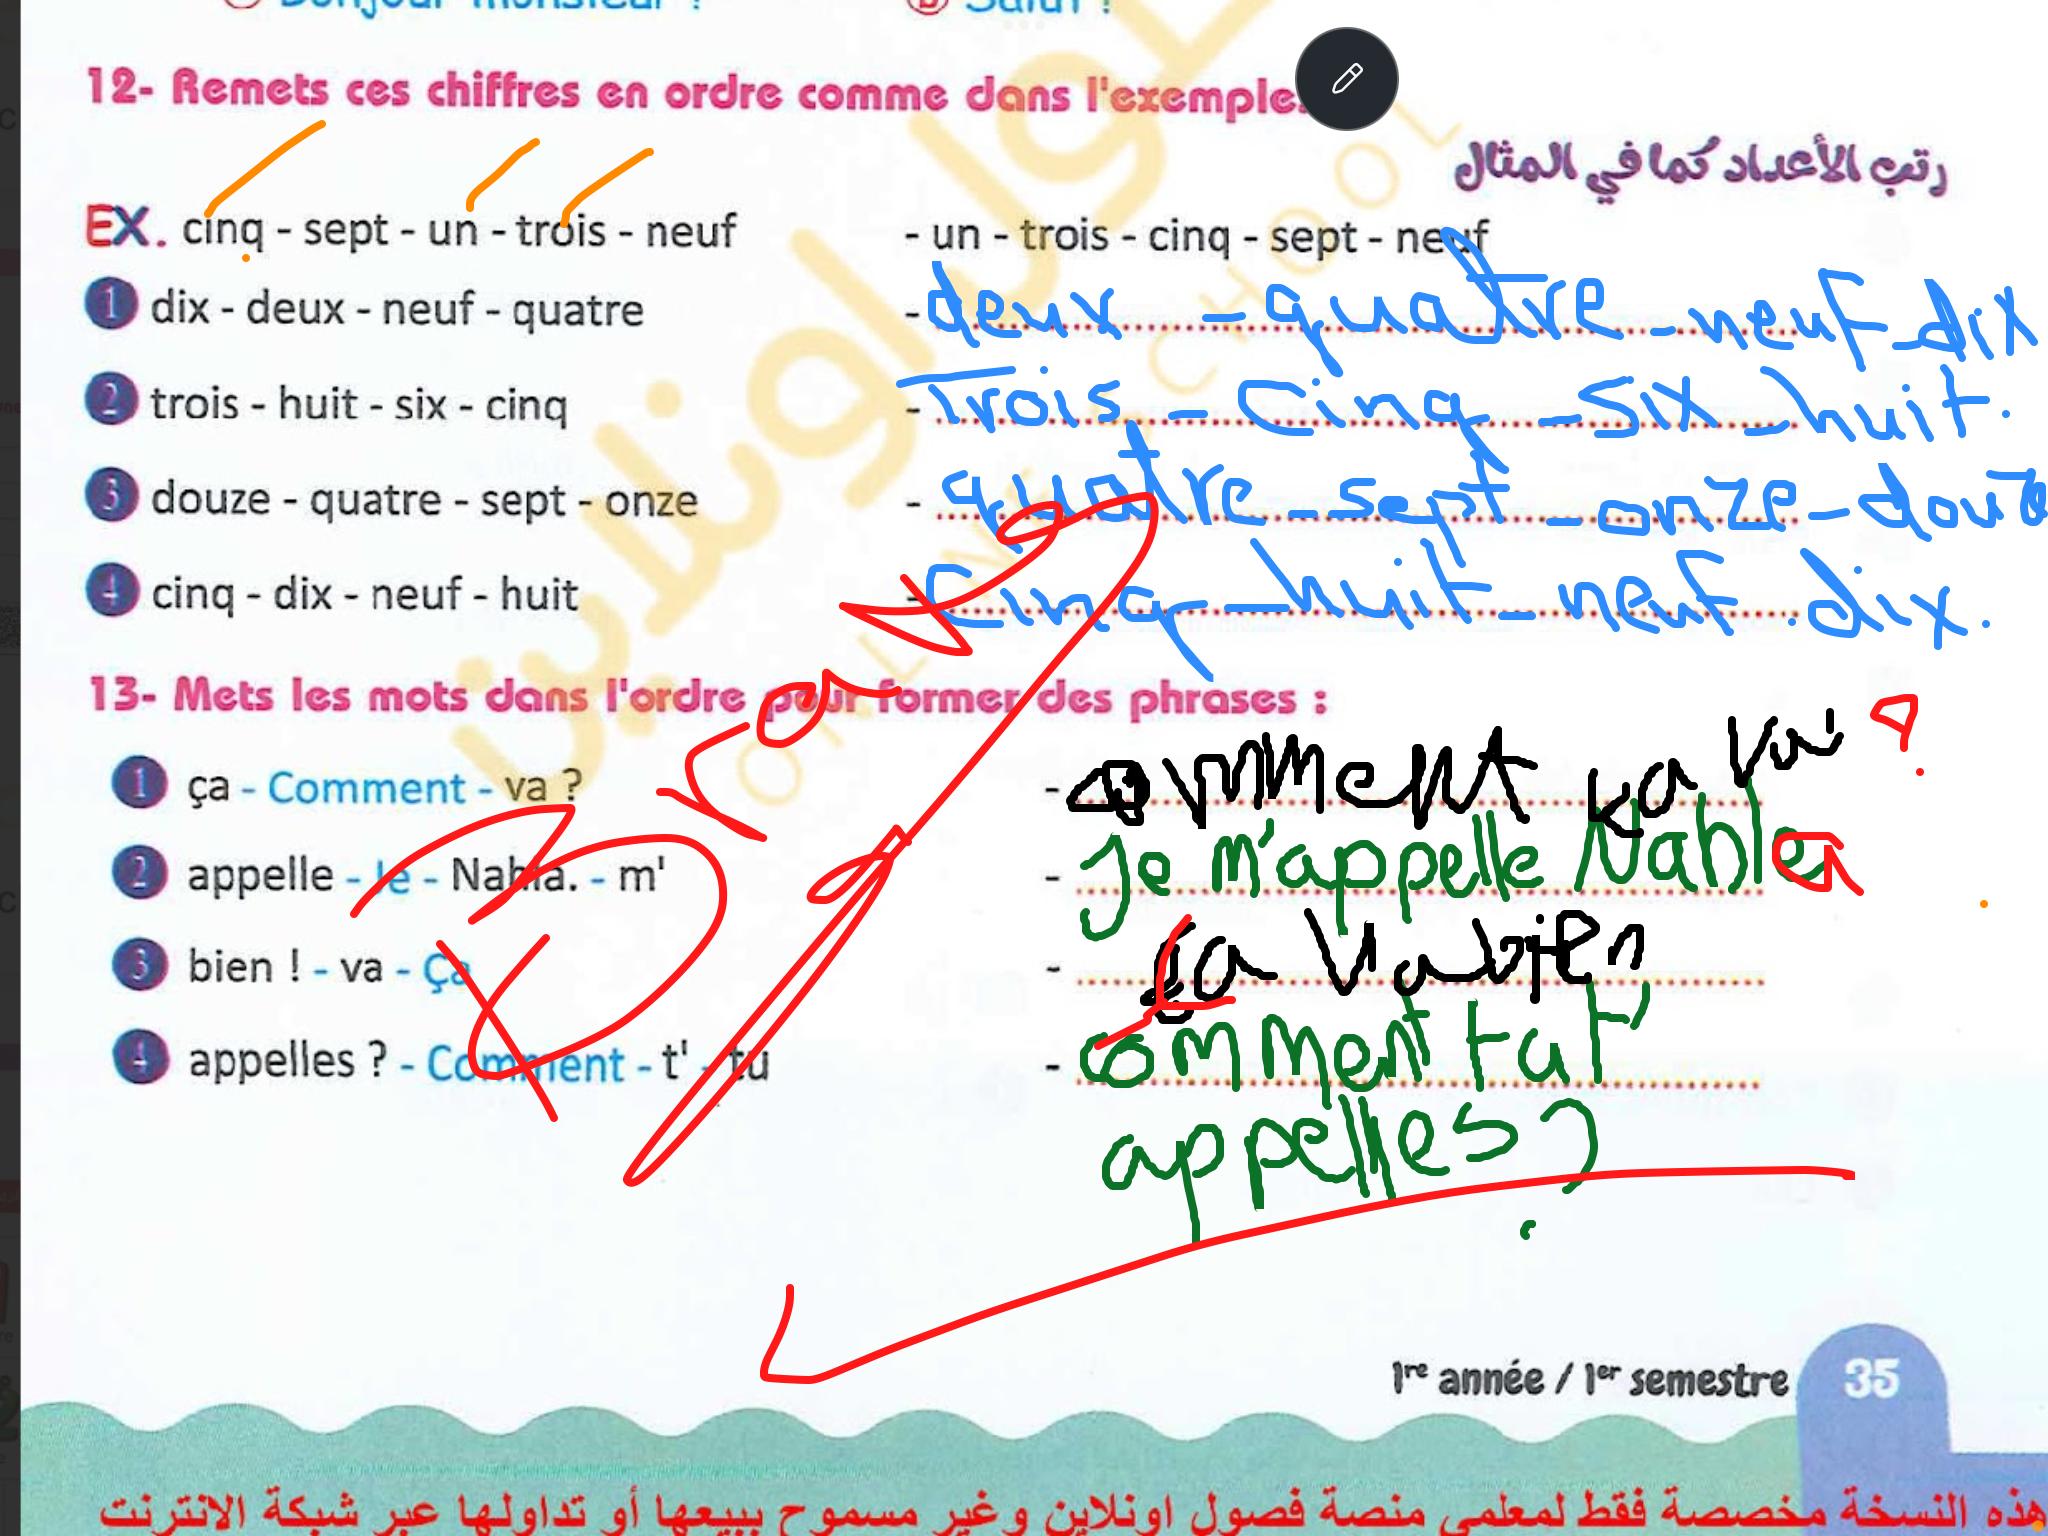 12- Remets ces chiffres en ordre comme dans l'exemple.
رتب الأعداد كما في المثال
EX. cinq - sept - un - trois - neuf - un - trois - cinq - sept - neuf
1 dix - deux - neuf - quatre - deux - quatre - neuf - dix
2 trois - huit - six - cinq - trois - cinq - six - huit.
3 douze - quatre - sept - onze - quatre - sept - onze - douze
4 cinq - dix - neuf - huit - cinq - huit - neuf . dix.
13- Mets les mots dans l'ordre pour former des phrases :
1 ça - Comment - va ? - comment ça va ?
2 appelle - Je - Nahla. - m' - je m'appelle Nahla
3 bien ! - va - Ça - ça va bien
4 appelles ? - Comment - t' - tu - comment tu t'
appelles?
Bravo
1re année / 1er semestre 35
هذه النسخة مخصصة فقط لمعلمي منصة فصول اونلاين وغير مسموح ببيعها أو تداولها عبر شبكة الانترنت